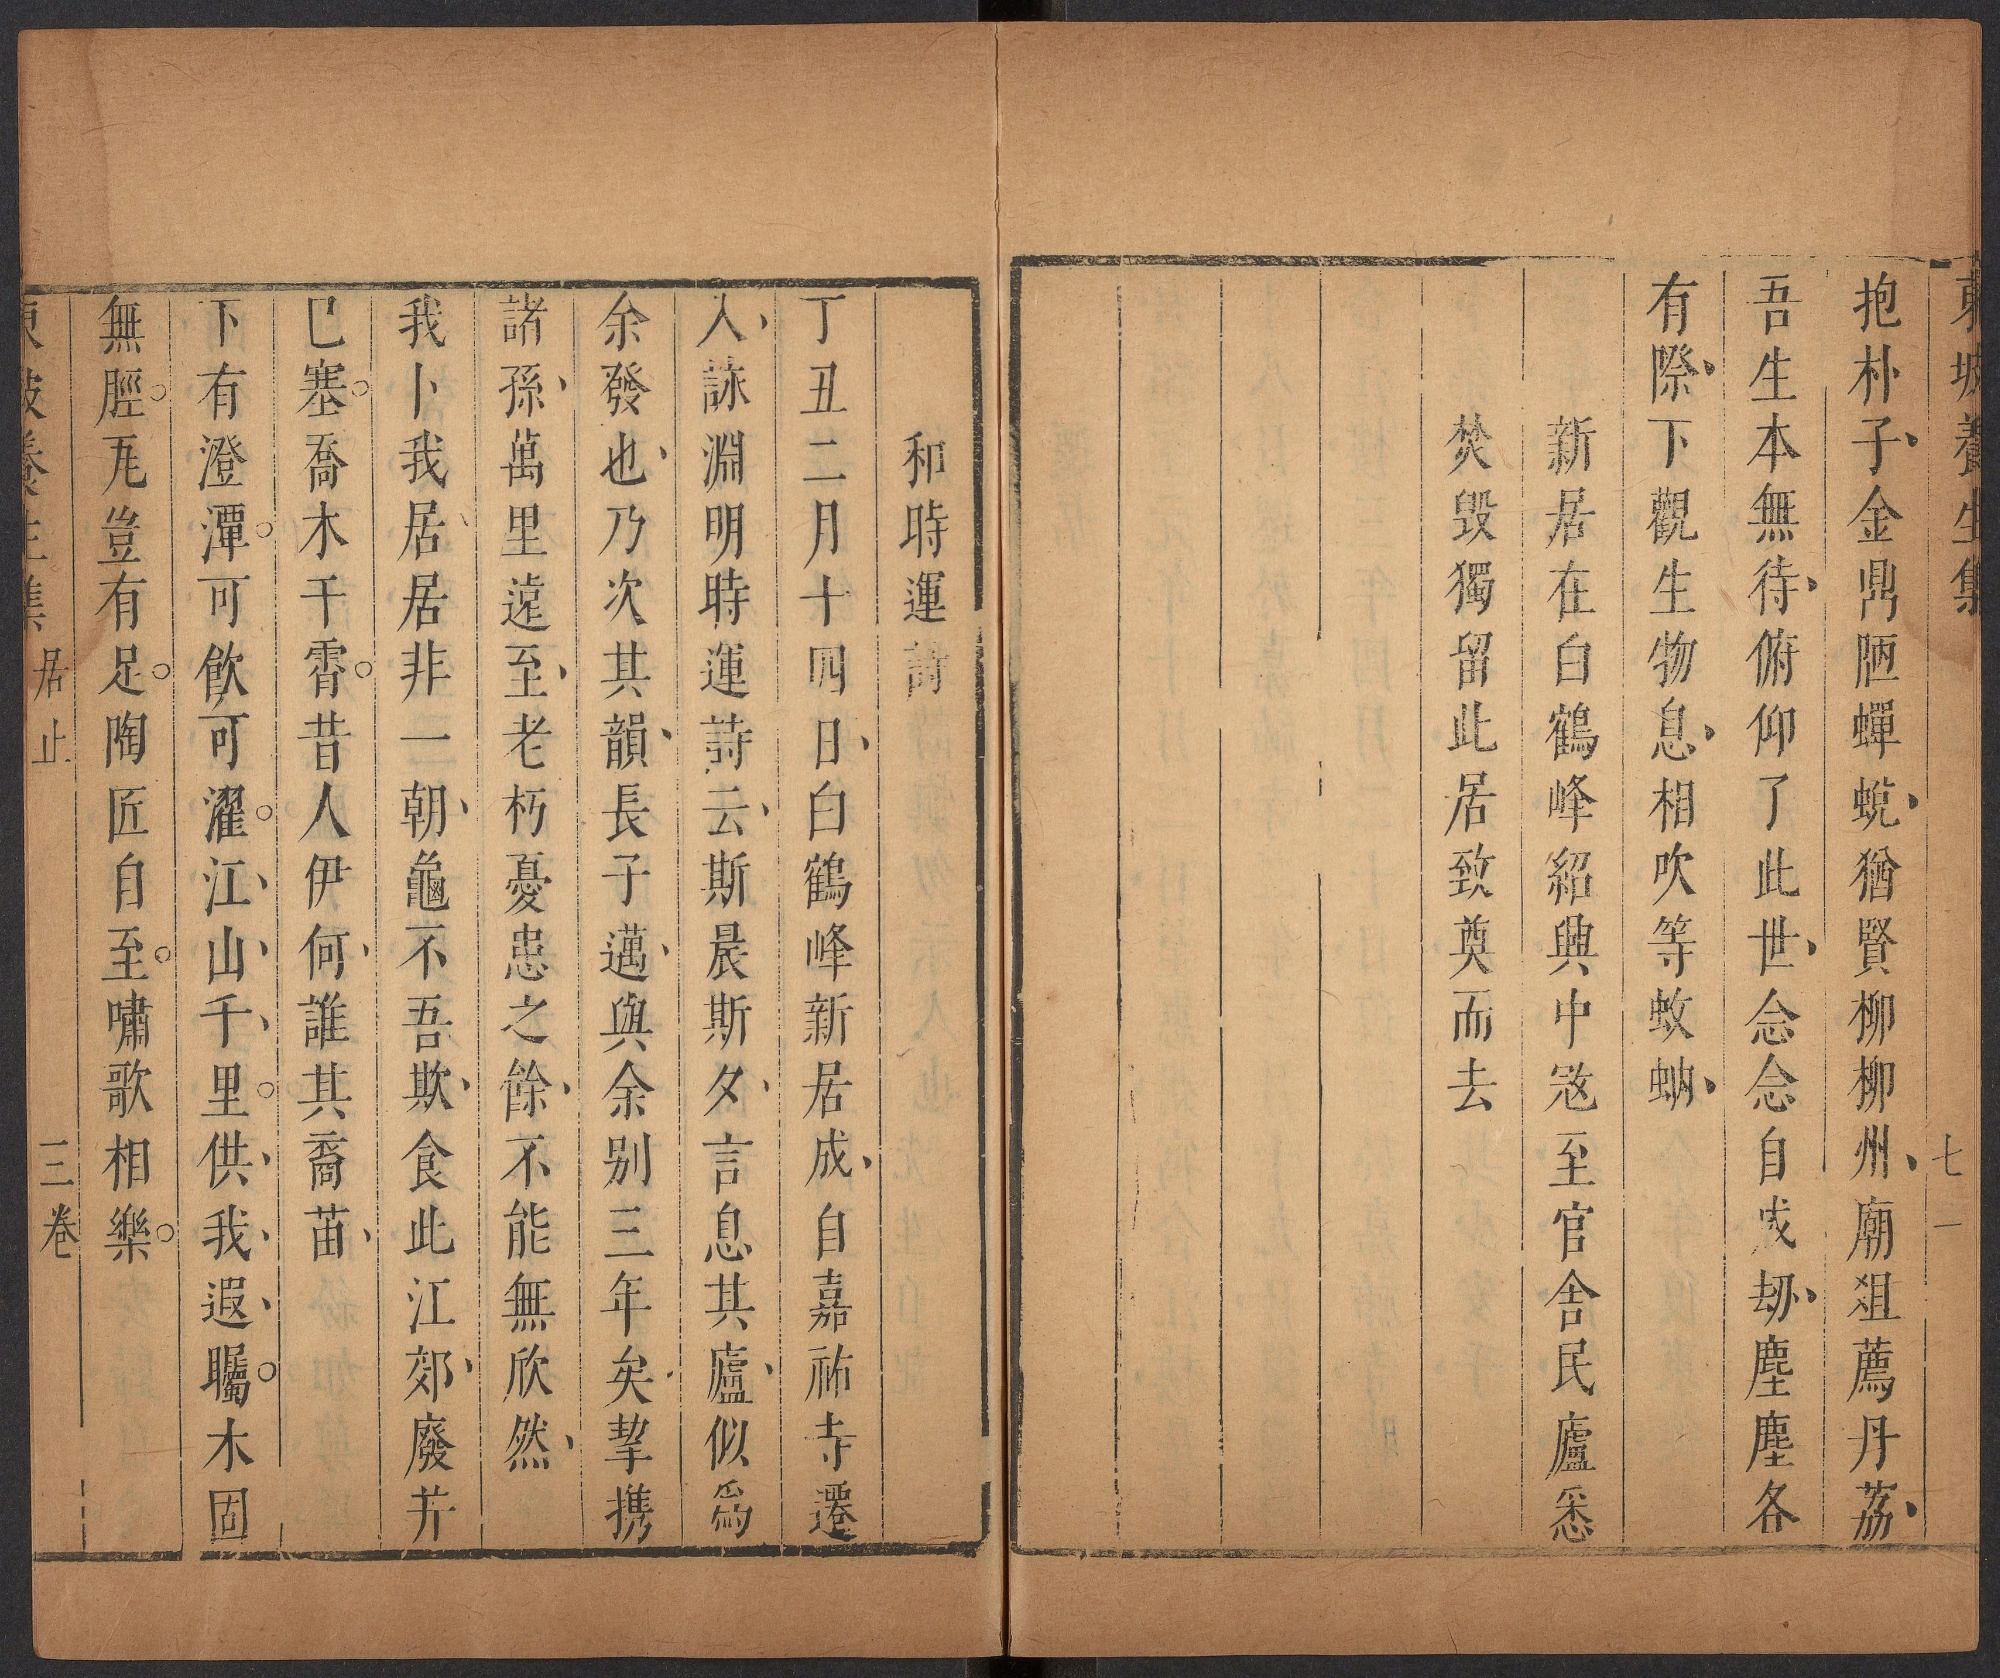 東坡養生集
七一
抱朴子金鼎陋蟬蛻猶賢柳柳州廟俎薦丹荔
吾生本無待俯仰了此世念念自成劫塵塵各
有際下觀生物息相吹等蚊蚋
新居在白鶴峰紹興中宼至官舍民廬悉
焚毀獨留此居致奠而去
和時運詩
丁丑二月十四日白鶴峰新居成自嘉祐寺遷
入詠淵明時運詩云斯晨斯夕言息其廬似爲
余發也乃次其韻長子邁與余别三年矣挈携
諸孫萬里遠至老朽憂患之餘不能無欣然
我卜我居居非一朝龜不吾欺食此江郊廢井
已塞喬木干霄昔人伊何誰其裔苗
下有澄潭可飲可濯江山千里供我遐矚木固
無脛瓦豈有足陶匠自至嘯歌相樂
東坡養生集 居止 三卷